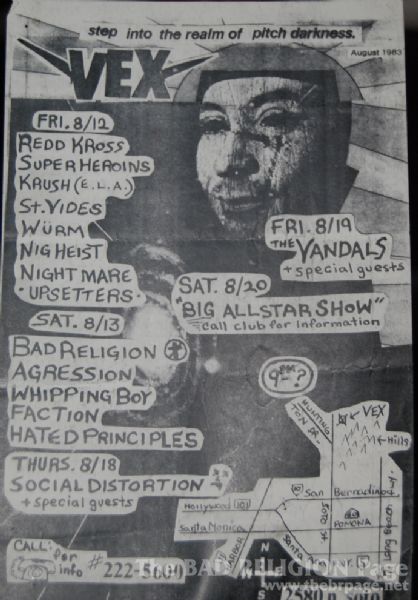 step into the realm of pitch darkness.
August 1983
VEX
FRI. 8/12
REDD KROSS
SUPERHEROINS
KRUSH (E.L.A.)
ST. VIDES
WÜRM
NIG HEIST
NIGHTMARE
·UPSETTERS·
SAT. 8/13
BAD RELIGION
AGRESSION
WHIPPING BOY
FACTION
HATED PRINCIPLES
THURS. 8/18
SOCIAL DISTORTION
+ special guests
FRI. 8/19
THE VANDALS
+ special guests
SAT. 8/20
"BIG ALLSTAR SHOW"
call club for information
9PM-?
HUNTING
TON DR.
VEX
Hills
10 San Bernadino
Hollywood 101
Santa Monica
SOTO ST
60
POMONA
Long Beach
HARBOR
Santa
5
N
W
S
CALL:
for
info
# 222-5600
The BAD RELIGION Page
www.thebrpage.net